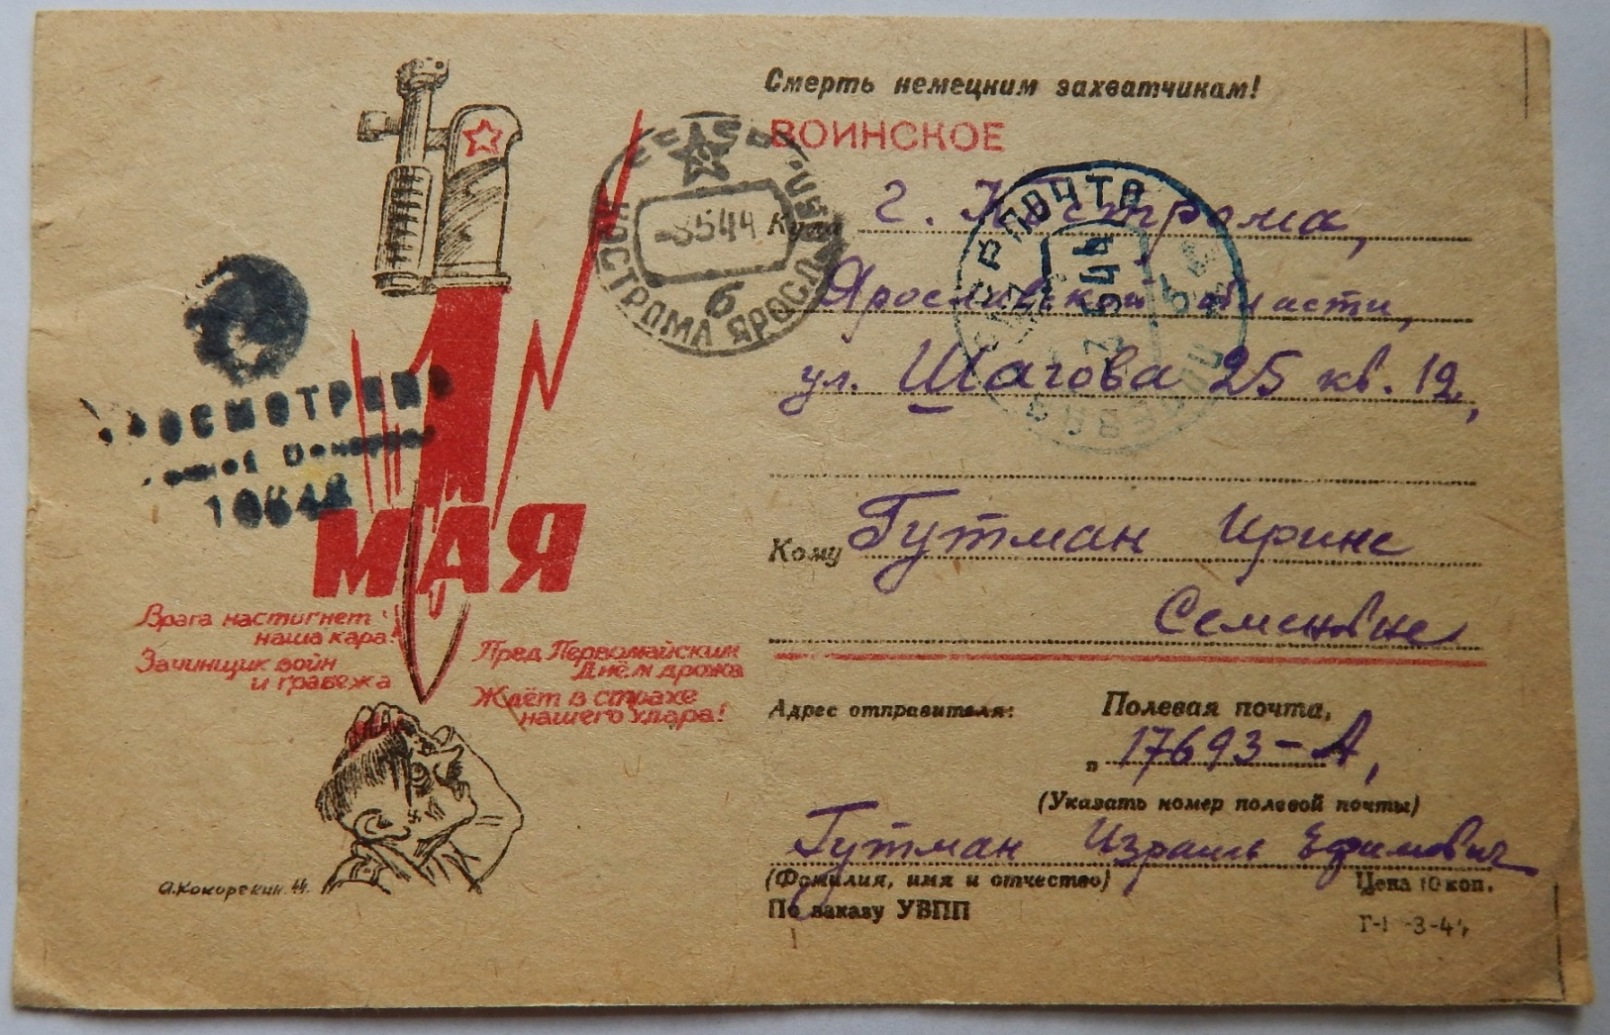 Смерть немецким захватчикам!
ВОИНСКОЕ
Куда г. Кострома,
Ярославской области,
ул. Шагова 25 кв. 12,
Кому Гутман Ирине
Семеновне
Адрес отправителя: Полевая почта,
17693-А,
(Указать номер полевой почты)
Гутман Израиль Ефимович
(Фамилия, имя и отчество) Цена 10 коп.
По заказу УВПП
1 МАЯ
Врага настигнет
наша кара!
Зачинщик войн
и грабежа
Пред Первомайским
Днём дрожа
Ждёт в страхе
нашего удара!
А.Кокорекин.44.
-8544
6
КОСТРОМА ЯРОСЛ. ОБЛ.
ПОЧТА
ПРОСМОТРЕНО